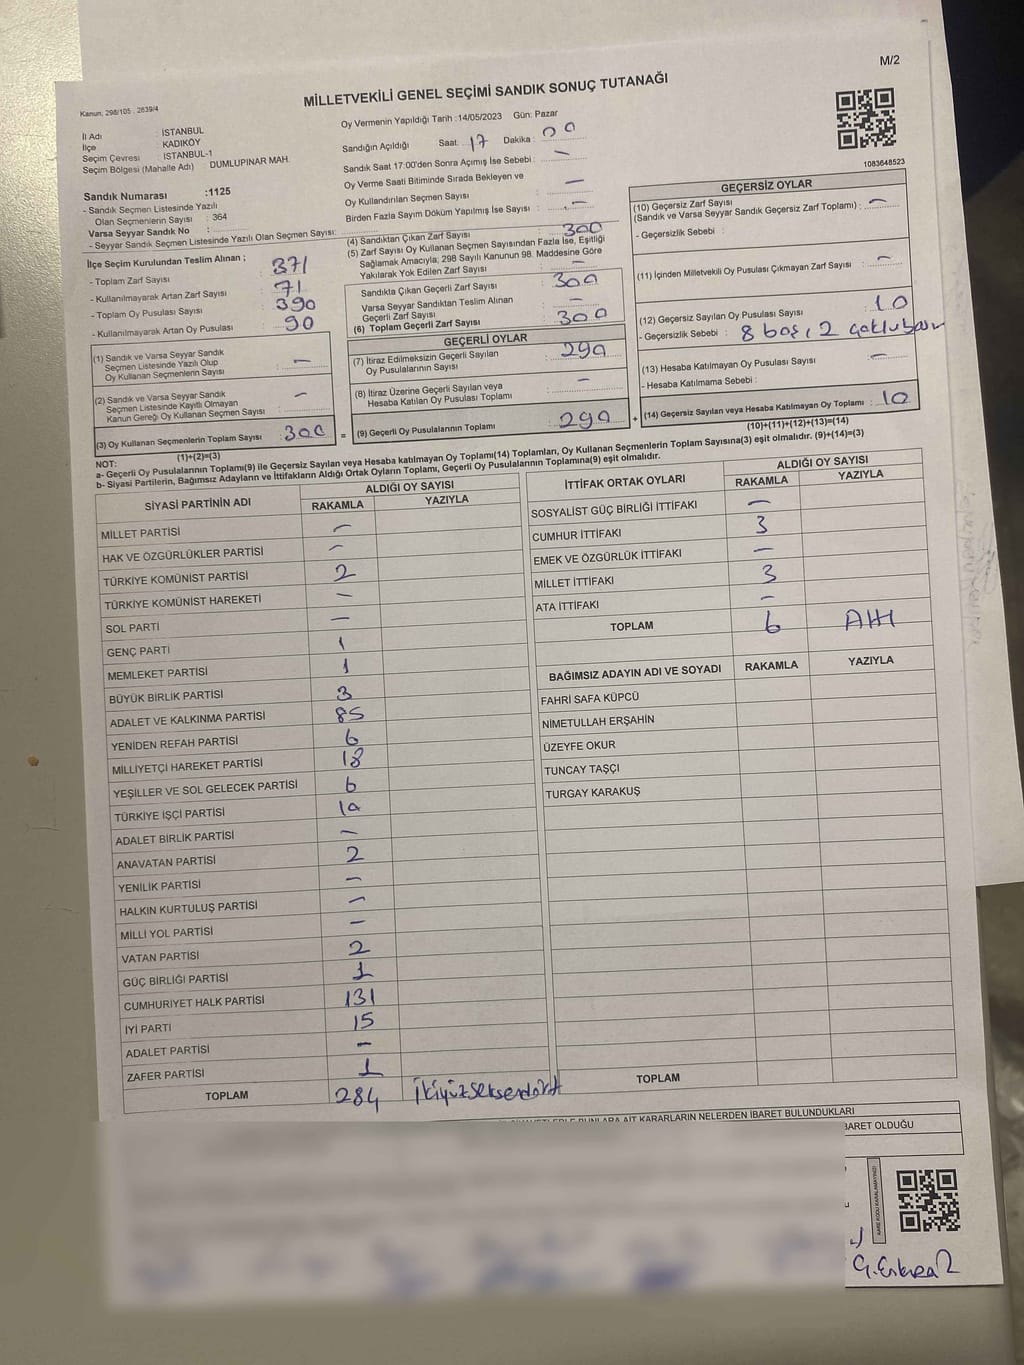 M/2
Kanun: 298/105 , 2839/4
MİLLETVEKİLİ GENEL SEÇİMİ SANDIK SONUÇ TUTANAĞI
İl Adı : İSTANBUL
İlçe : KADIKÖY
Seçim Çevresi : İSTANBUL-1
Seçim Bölgesi (Mahalle Adı) : DUMLUPINAR MAH.
Sandık Numarası :1125
- Sandık Seçmen Listesinde Yazılı
Olan Seçmenlerin Sayısı : 364
Varsa Seyyar Sandık No :
- Seyyar Sandık Seçmen Listesinde Yazılı Olan Seçmen Sayısı:
Oy Vermenin Yapıldığı Tarih :14/05/2023 Gün: Pazar
Sandığın Açıldığı Saat: 17 Dakika : 00
Sandık Saat 17:00'den Sonra Açımış İse Sebebi : —
Oy Verme Saati Bitiminde Sırada Bekleyen ve
Oy Kullandırılan Seçmen Sayısı : —
Birden Fazla Sayım Döküm Yapılmış İse Sayısı : —
1083648523
İlçe Seçim Kurulundan Teslim Alınan ;
- Toplam Zarf Sayısı : 371
- Kullanılmayarak Artan Zarf Sayısı : 71
- Toplam Oy Pusulası Sayısı : 390
- Kullanılmayarak Artan Oy Pusulası : 90
(1) Sandık ve Varsa Seyyar Sandık
Seçmen Listesinde Yazılı Olup
Oy Kullanan Seçmenlerin Sayısı : —
(2) Sandık ve Varsa Seyyar Sandık
Seçmen Listesinde Kayıtlı Olmayan
Kanun Gereği Oy Kullanan Seçmen Sayısı : —
(3) Oy Kullanan Seçmenlerin Toplam Sayısı : 300
(1)+(2)=(3)
(4) Sandıktan Çıkan Zarf Sayısı : 300
(5) Zarf Sayısı Oy Kullanan Seçmen Sayısından Fazla İse, Eşitliği
Sağlamak Amacıyla; 298 Sayılı Kanunun 98. Maddesine Göre
Yakılarak Yok Edilen Zarf Sayısı : —
Sandıkta Çıkan Geçerli Zarf Sayısı : 300
Varsa Seyyar Sandıktan Teslim Alınan
Geçerli Zarf Sayısı : —
(6) Toplam Geçerli Zarf Sayısı : 300
GEÇERLİ OYLAR
(7) İtiraz Edilmeksizin Geçerli Sayılan
Oy Pusulalarının Sayısı : 290
(8) İtiraz Üzerine Geçerli Sayılan veya
Hesaba Katılan Oy Pusulası Toplamı : —
= (9) Geçerli Oy Pusulalarının Toplamı : 290 +
GEÇERSİZ OYLAR
(10) Geçersiz Zarf Sayısı
(Sandık ve Varsa Seyyar Sandık Geçersiz Zarf Toplamı) : —
- Geçersizlik Sebebi :
(11) İçinden Milletvekili Oy Pusulası Çıkmayan Zarf Sayısı : —
(12) Geçersiz Sayılan Oy Pusulası Sayısı : 10
- Geçersizlik Sebebi : 8 boş, 2
(13) Hesaba Katılmayan Oy Pusulası Sayısı : —
- Hesaba Katılmama Sebebi :
(14) Geçersiz Sayılan veya Hesaba Katılmayan Oy Toplamı : 10
(10)+(11)+(12)+(13)=(14)
NOT:
a- Geçerli Oy Pusulalarının Toplamı(9) ile Geçersiz Sayılan veya Hesaba katılmayan Oy Toplamı(14) Toplamları, Oy Kullanan Seçmenlerin Toplam Sayısına(3) eşit olmalıdır. (9)+(14)=(3)
b- Siyasi Partilerin, Bağımsız Adayların ve İttifakların Aldığı Ortak Oyların Toplamı, Geçerli Oy Pusulalarının Toplamına(9) eşit olmalıdır.
SİYASİ PARTİNİN ADI ALDIĞI OY SAYISI
RAKAMLA YAZIYLA
MİLLET PARTİSİ —
HAK VE ÖZGÜRLÜKLER PARTİSİ —
TÜRKİYE KOMÜNİST PARTİSİ 2
TÜRKİYE KOMÜNİST HAREKETİ —
SOL PARTİ —
GENÇ PARTİ 1
MEMLEKET PARTİSİ 1
BÜYÜK BİRLİK PARTİSİ 3
ADALET VE KALKINMA PARTİSİ 85
YENİDEN REFAH PARTİSİ 6
MİLLİYETÇİ HAREKET PARTİSİ 18
YEŞİLLER VE SOL GELECEK PARTİSİ 6
TÜRKİYE İŞÇİ PARTİSİ 10
ADALET BİRLİK PARTİSİ —
ANAVATAN PARTİSİ 2
YENİLİK PARTİSİ —
HALKIN KURTULUŞ PARTİSİ —
MİLLİ YOL PARTİSİ —
VATAN PARTİSİ 2
GÜÇ BİRLİĞİ PARTİSİ 1
CUMHURİYET HALK PARTİSİ 131
İYİ PARTİ 15
ADALET PARTİSİ —
ZAFER PARTİSİ 1
TOPLAM 284 İkiyüzseksendört
İTTİFAK ORTAK OYLARI ALDIĞI OY SAYISI
RAKAMLA YAZIYLA
SOSYALİST GÜÇ BİRLİĞİ İTTİFAKI —
CUMHUR İTTİFAKI 3
EMEK VE ÖZGÜRLÜK İTTİFAKI —
MİLLET İTTİFAKI 3
ATA İTTİFAKI —
TOPLAM 6 Altı
BAĞIMSIZ ADAYIN ADI VE SOYADI RAKAMLA YAZIYLA
FAHRİ SAFA KÜPCÜ
NİMETULLAH ERŞAHİN
ÜZEYFE OKUR
TUNCAY TAŞÇI
TURGAY KARAKUŞ
TOPLAM
BUNLARA AİT KARARLARIN NELERDEN İBARET BULUNDUKLARI
İBARET OLDUĞU
KARE KODU KARALAMAYINIZ!